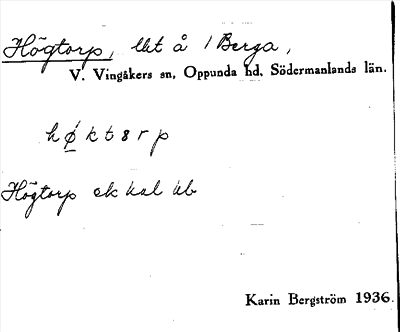 Högtorp, lht å 1 Berga,
V. Vingåkers sn, Oppunda hd, Södermanlands län.
høktsrp
Högtorp ek kal
Karin Bergström 1936.